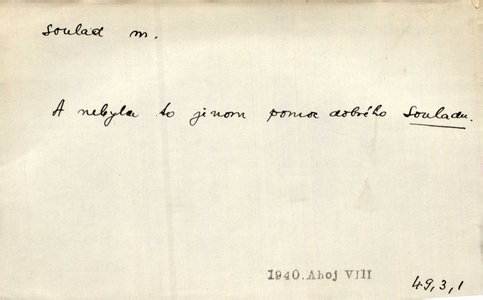 soulad m.
A nebyla to jenom pomoc dobrého Souladu.
1940. Ahoj VIII
49,3,1